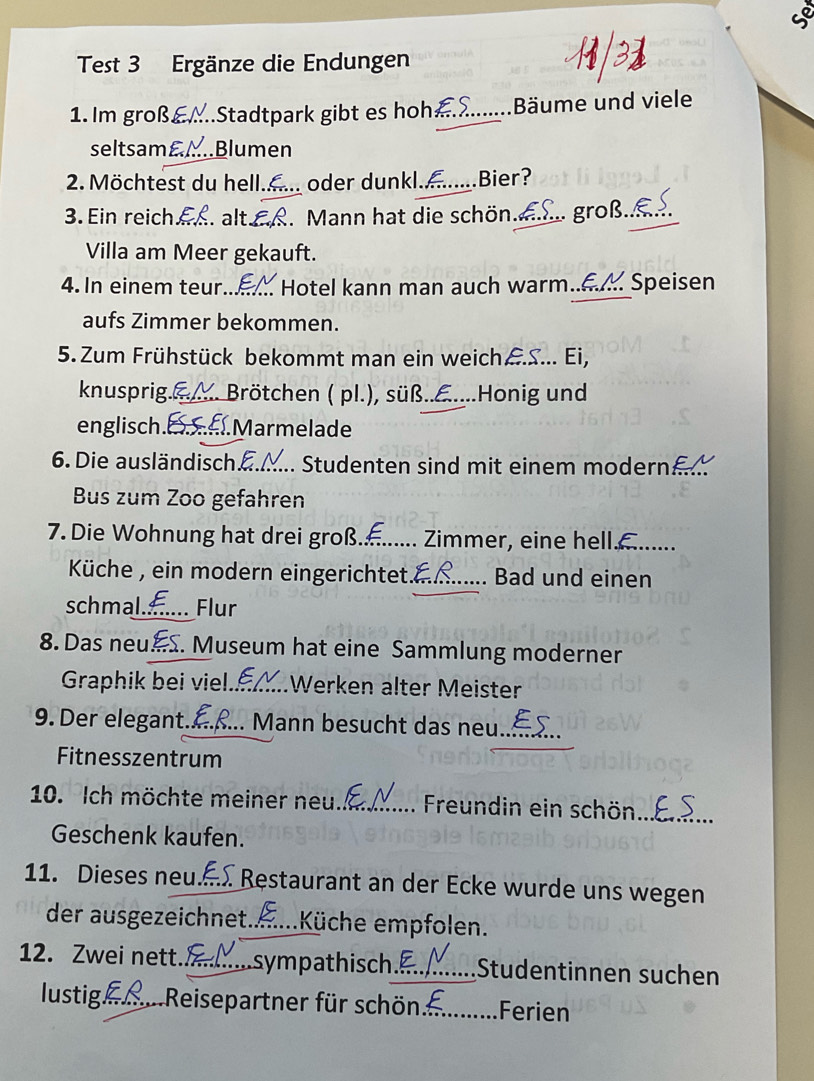 Test 3 Ergänze die Endungen
11/31
1. Im groß EN...Stadtpark gibt es hoh ES.........Bäume und viele
seltsam EN....Blumen
2. Möchtest du hell..E.... oder dunkl..E.......Bier?
3. Ein reich ER... alt.ER.. Mann hat die schön..ES... groß..ES...
Villa am Meer gekauft.
4. In einem teur..EN... Hotel kann man auch warm..EN... Speisen
aufs Zimmer bekommen.
5. Zum Frühstück bekommt man ein weich.ES... Ei,
knusprig.EN... Brötchen ( pl.), süß..E.....Honig und
englisch.ES...Marmelade
6. Die ausländisch.EN.... Studenten sind mit einem modern EN...
Bus zum Zoo gefahren
7. Die Wohnung hat drei groß..E...... Zimmer, eine hell..E.......
Küche , ein modern eingerichtet.ER...... Bad und einen
schmal..E..... Flur
8. Das neu.ES.. Museum hat eine Sammlung moderner
Graphik bei viel..EN....Werken alter Meister
9. Der elegant..ER... Mann besucht das neu..ES....
Fitnesszentrum
10. Ich möchte meiner neu..EN..... Freundin ein schön...ES....
Geschenk kaufen.
11. Dieses neu.ES.. Restaurant an der Ecke wurde uns wegen
der ausgezeichnet..E....Küche empfolen.
12. Zwei nett..EN.....sympathisch..EN......Studentinnen suchen
lustig.ER....Reisepartner für schön..E........Ferien